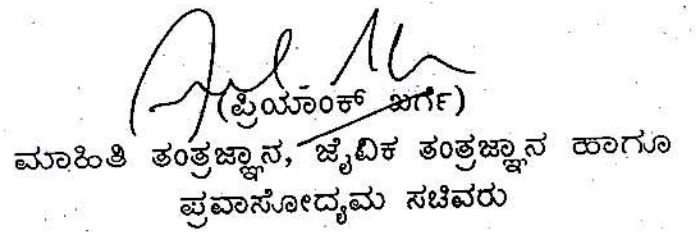 (ಪ್ರಿಯಾಂಕ್ ಖರ್ಗೆ)
ಮಾಹಿತಿ ತಂತ್ರಜ್ಞಾನ, ಜೈವಿಕ ತಂತ್ರಜ್ಞಾನ ಹಾಗೂ
ಪ್ರವಾಸೋದ್ಯಮ ಸಚಿವರು